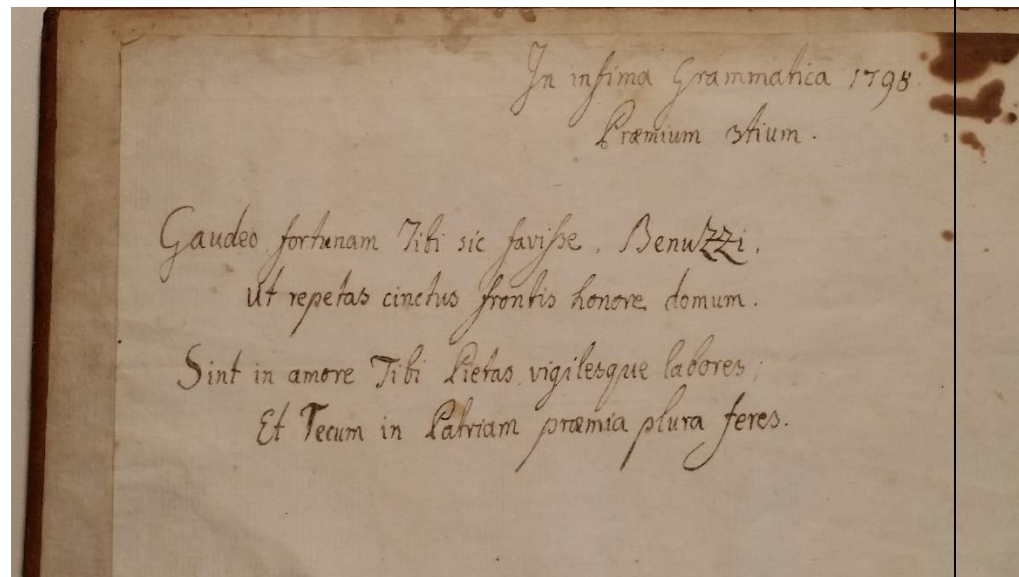 In infima Grammatica 1798
Præmium 3tium.
Gaudeo fortunam Tibi sic favisse, Benuzzi,
Ut repetas cinctus frontis honore domum.
Sint in amore Tibi Pietas, vigilesque labores;
Et Tecum in Patriam præmia plura feres.